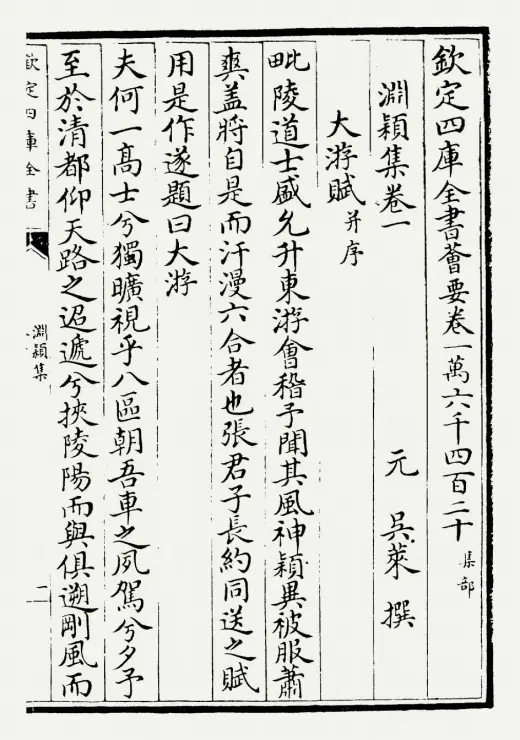 欽定四庫全書薈要卷一萬六千四百二十 集部
淵穎集卷一 元 吳萊 撰
大游賦 并序
毗陵道士盛允升東游會稽予聞其風神穎異被服蕭
爽盖將自是而汗漫六合者也張君子長約同送之賦
用是作遂題曰大游
夫何一高士兮獨曠視乎八區朝吾車之夙駕兮夕予
至於清都仰天路之迢遞兮挾陵陽而與俱遡剛風而
欽定四庫全書
淵穎集
二